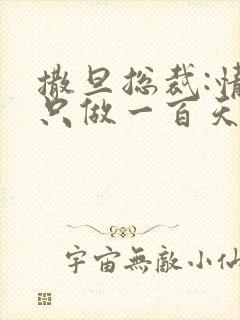 撒旦总裁:情
只做一百天
宇宙無敵小仙